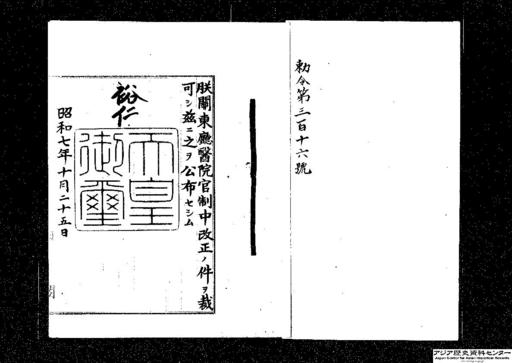 勅令第三百十六號
朕關東廳醫院官制中改正ノ件ヲ裁
可シ茲ニ之ヲ公布セシム
裕仁
天皇
御璽
昭和七年十月二十五日
アジア歴史資料センター
Japan Center for Asian Historical Records